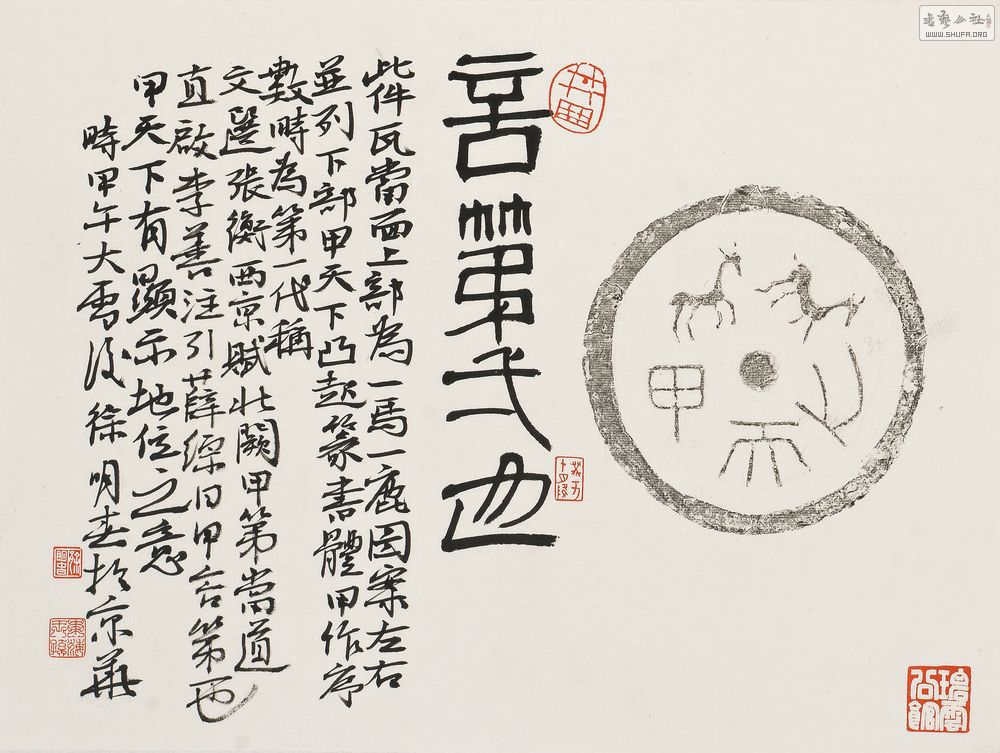 甲天下
言第一也
此件瓦當面上部為一馬一鹿图案左右
並列下部甲天下凸起篆書體甲作序
數時為第一代稱
文選張衡西京賦北闕甲第當道
直啟李善注引薛綜曰甲言第也
甲天下有顯示地位之意
時甲午大雪後徐明春於京華
WWW.SHUFA.ORG